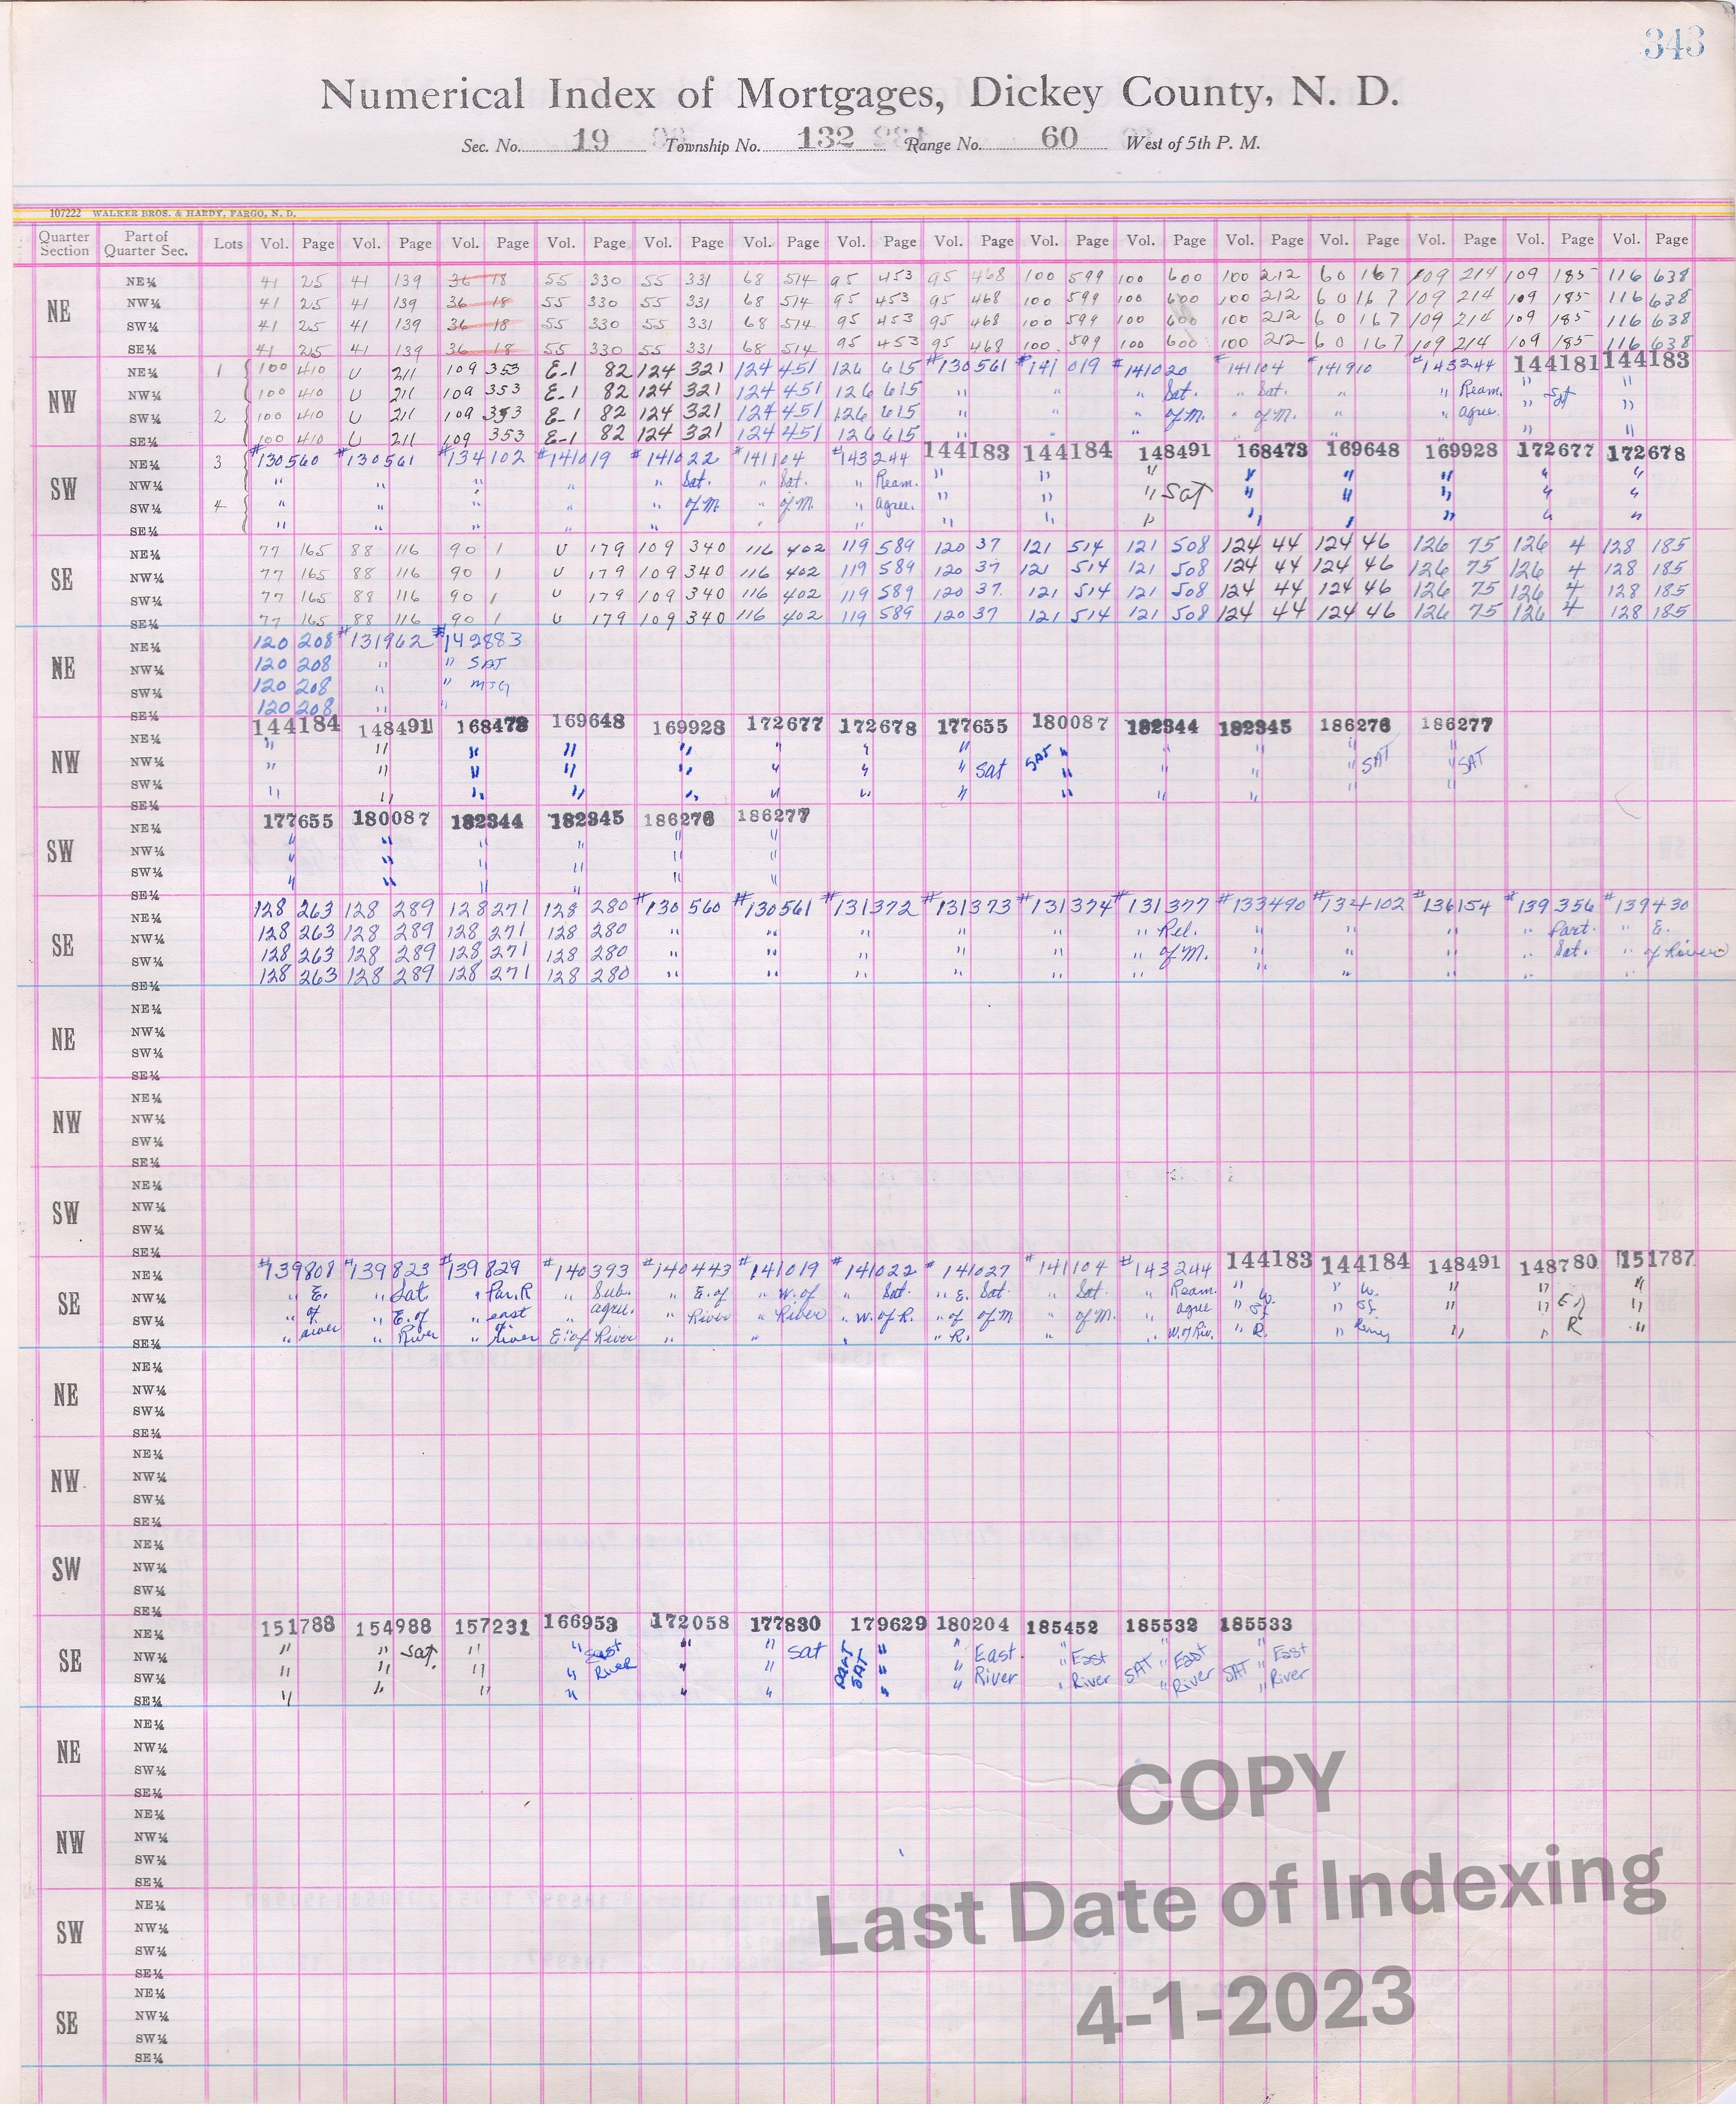 343
Numerical Index of Mortgages, Dickey County, N. D.
Sec. No. 19 Township No. 132 Range No. 60 West of 5th P. M.
107222 WALKER BROS. & HARDY, FARGO, N. D.
Quarter Section Part of Quarter Sec. Lots Vol. Page Vol. Page Vol. Page Vol. Page Vol. Page Vol. Page Vol. Page Vol. Page Vol. Page Vol. Page Vol. Page Vol. Page Vol. Page Vol. Page Vol. Page
NE
NE¼ 41 25 41 139 36 18 55 330 55 331 68 514 95 453 95 468 100 599 100 600 100 212 60 167 109 214 109 185 116 638
NW¼ 41 25 41 139 36 18 55 330 55 331 68 514 95 453 95 468 100 599 100 600 100 212 60 167 109 214 109 185 116 638
SW¼ 41 25 41 139 36 18 55 330 55 331 68 514 95 453 95 468 100 599 100 600 100 212 60 167 109 214 109 185 116 638
SE¼ 41 25 41 139 36 18 55 330 55 331 68 514 95 453 95 468 100 599 100 600 100 212 60 167 109 214 109 185 116 638
NW
NE¼ 1 100 410 U 211 109 353 E-1 82 124 321 124 451 126 615 #130561 #141019 #141020 #141104 #141910 #143244 144181 144183
NW¼ 100 410 U 211 109 353 E-1 82 124 321 124 451 126 615 " " " Sat. " Sat. " " Ream. " Sat "
SW¼ 2 100 410 U 211 109 353 E-1 82 124 321 124 451 126 615 " " " of M. " of M. " " agree. " "
SE¼ 100 410 U 211 109 353 E-1 82 124 321 124 451 126 615 " " " " " " " "
SW
NE¼ 3 #130560 #130561 #134102 #141019 #141022 #141104 #143244 144183 144184 148491 168473 169648 169928 172677 172678
NW¼ " " " " " Sat. " Sat. " Ream. " " " " " " " "
SW¼ 4 " " " " " of M. " of M. " agree. " " " Sat " " " " "
SE¼ " " " " " " " " " " " " " " "
SE
NE¼ 77 165 88 116 90 1 U 179 109 340 116 402 119 589 120 37 121 514 121 508 124 44 124 46 126 75 126 4 128 185
NW¼ 77 165 88 116 90 1 U 179 109 340 116 402 119 589 120 37 121 514 121 508 124 44 124 46 126 75 126 4 128 185
SW¼ 77 165 88 116 90 1 U 179 109 340 116 402 119 589 120 37 121 514 121 508 124 44 124 46 126 75 126 4 128 185
SE¼ 77 165 88 116 90 1 U 179 109 340 116 402 119 589 120 37 121 514 121 508 124 44 124 46 126 75 126 4 128 185
NE
NE¼ 120 208 #131962 #142883
NW¼ 120 208 " " SAT
SW¼ 120 208 " " MTG
SE¼ 120 208 " "
NW
NE¼ 144184 148491 168473 169648 169928 172677 172678 177655 180087 182344 182345 186276 186277
NW¼ " " " " " " " " SAT " " " " SAT " SAT
SW¼ " " " " " " " " Sat " " " " "
SE¼ " " " " " " " " " " " " "
SW
NE¼ 177655 180087 182344 182345 186276 186277
NW¼ " " " " " "
SW¼ " " " " " "
SE¼ " " " " " "
SE
NE¼ 128 263 128 289 128 271 128 280 #130560 #130561 #131372 #131373 #131374 #131377 #133490 #134102 #136154 #139356 #139430
NW¼ 128 263 128 289 128 271 128 280 " " " " " " Rel. " " " " Part. " E.
SW¼ 128 263 128 289 128 271 128 280 " " " " " " of M. " " " " Sat. " of River
SE¼ 128 263 128 289 128 271 128 280 " " " " " " " " " " "
NE
NE¼
NW¼
SW¼
SE¼
NW
NE¼
NW¼
SW¼
SE¼
SW
NE¼
NW¼
SW¼
SE¼
SE
NE¼ #139808 #139823 #139829 #140393 #140443 #141019 #141022 #141027 #141104 #143244 144183 144184 148491 148780 151787
NW¼ " E. " Sat. " Par. R " Sub. " E. of " W. of " Sat. " E. Sat. " Sat. " Ream. " W. " W. " " "
SW¼ " of " E. of " east " agree. " River " River " W. of R. " of of M " of M. " agree " of " of " " E of "
SE¼ " river " River " of river E. of River " " " " R. " " W. of Riv. " R. " River " " R "
NE
NE¼
NW¼
SW¼
SE¼
NW
NE¼
NW¼
SW¼
SE¼
SW
NE¼
NW¼
SW¼
SE¼
SE
NE¼ 151788 154988 157231 166953 172058 177830 179629 180204 185452 185532 185533
NW¼ " " Sat. " " East " " Sat PART SAT " " East " East SAT " East SAT " East
SW¼ " " " " River " " " " River " River " River " River
SE¼ " " " " " " " "
NE
NE¼
NW¼
SW¼
SE¼
NW
NE¼
NW¼
SW¼
SE¼
SW
NE¼
NW¼
SW¼
SE¼
SE
NE¼
NW¼
SW¼
SE¼
COPY
Last Date of Indexing
4-1-2023